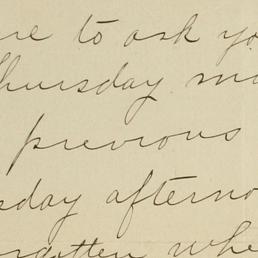 to ask yo
Thursday mo
previous
sday afterno
rgotten whe